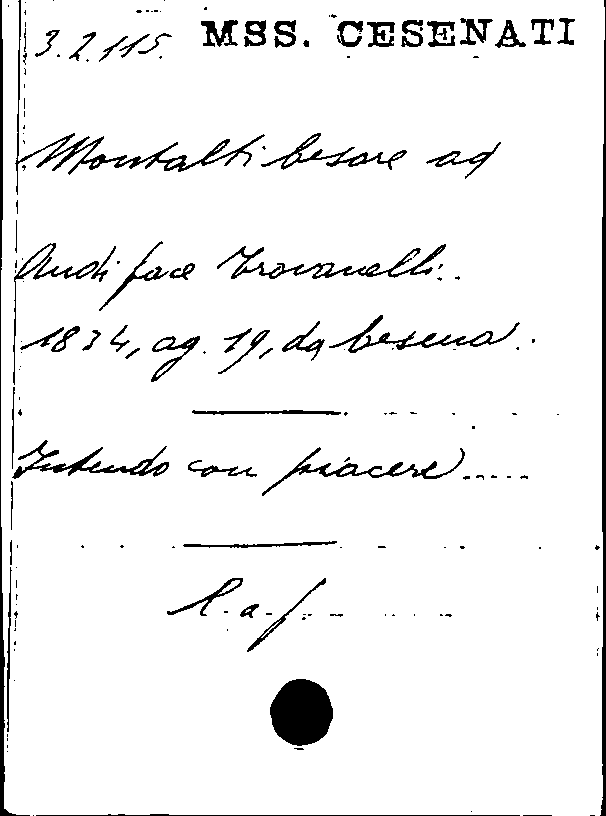 3.2.115. MSS. CESENATI
Montalti Cesare ad
Audiface Trovanelli.
1834, ag. 19, da Cesena.
Intendo con piacere.....
L. a. f.